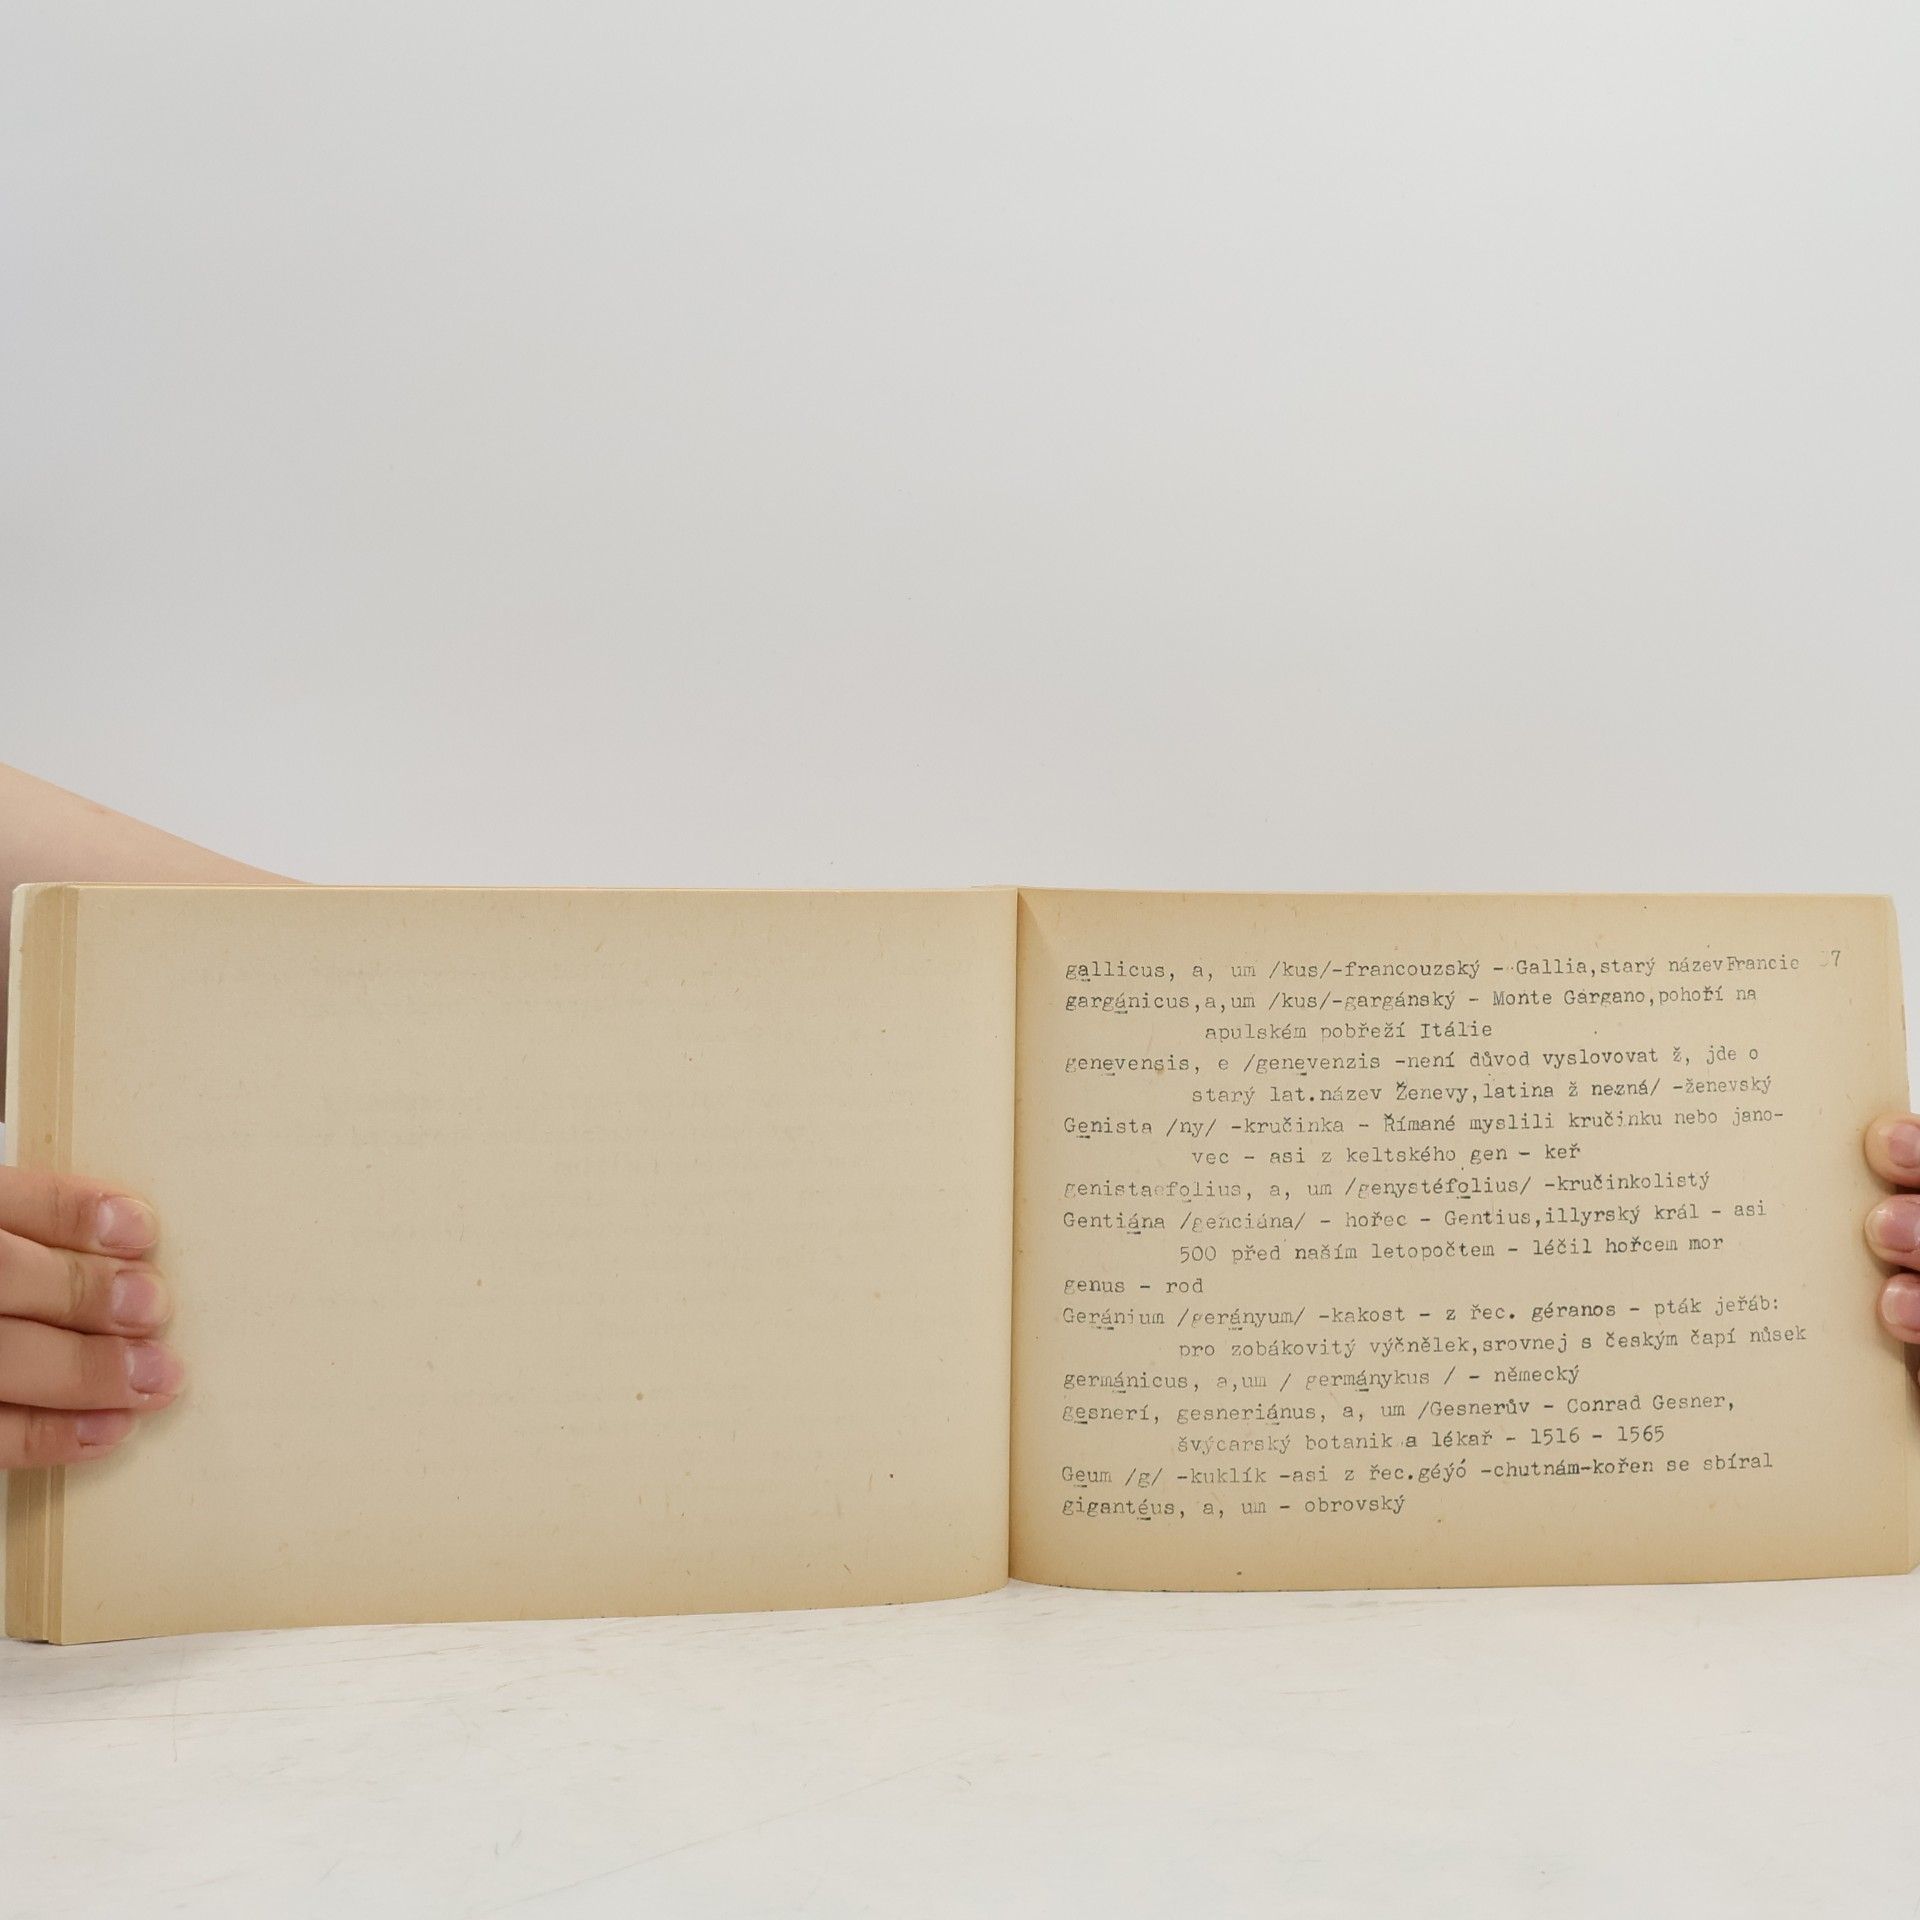 gallicus, a, um /kus/-francouzský - Gallia,starý názevFrancie 7
gargánicus,a,um /kus/-gargánský - Monte Gargano,pohoří na
apulském pobřeží Itálie
genevensis, e /genevenzis -není důvod vyslovovat ž, jde o
starý lat.název Ženevy,latina ž nezná/ -ženevský
Genista /ny/ -kručinka - Římané myslili kručinku nebo jano-
vec - asi z keltského gen - keř
genistaefolius, a, um /genystéfolius/ -kručinkolistý
Gentiána /genciána/ - hořec - Gentius,illyrský král - asi
500 před naším letopočtem - léčil hořcem mor
genus - rod
Geránium /gerányum/ -kakost - z řec. géranos - pták jeřáb:
pro zobákovitý výčnělek,srovnej s českým čapí nůsek
germánicus, a,um / germánykus / - německý
gesnerí, gesneriánus, a, um /Gesnerův - Conrad Gesner,
švýcarský botanik a lékař - 1516 - 1565
Geum /g/ -kuklík -asi z řec.géýó -chutnám-kořen se sbíral
gigantéus, a, um - obrovský